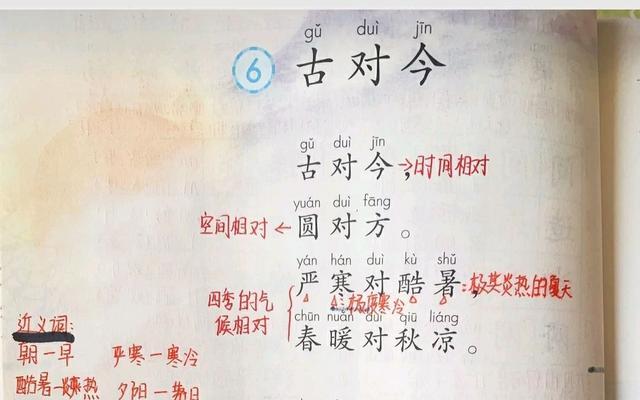 gǔ duì jīn
6 古对今
gǔ duì jīn
古对今，→时间相对
yuán duì fāng
空间相对←圆对方。
yán hán duì kù shǔ
严寒对酷暑，:极其炎热的夏天
四季的气候相对
极度寒冷
chūn nuǎn duì qiū liáng
春暖对秋凉。
近义词:
朝一早 严寒一寒冷
酷暑一炎热 夕阳一